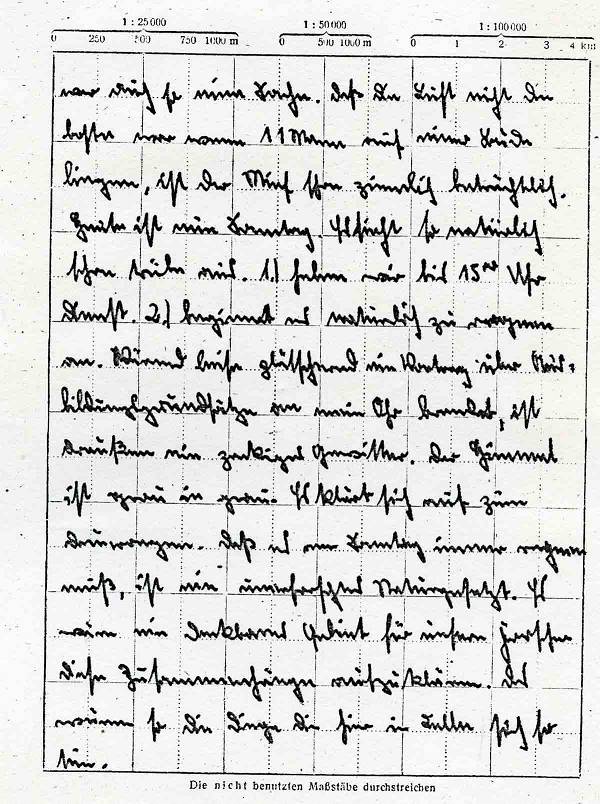 1 : 25 000 1 : 50 000 1 : 100 000
0 250 500 750 1000 m 0 500 1000 m 0 1 2 3 4 km
war auch so eine Sache. Daß die Luft nicht die
beste war wenn 11 Mann auf einer Bude
liegen, ist der Mief schon ziemlich beträchtlich.
Heute ist nun Samstag. Es sieht so natürlich
schon trübe aus. 1.) haben wir bis 15⁰⁰ Uhr
Dienst. 2.) beginnt es natürlich zu regnen
an. Während leise plätschernd ein Vortrag über Aus-
bildungsgrundsätze an mein Ohr brandet, ist
draußen ein zackiges Gewitter. Der Himmel
ist grau in grau. Es klärt sich auf zum
Dauerregen. Daß es am Samstag immer regnen
muß, ist ein unerforschtes Naturgesetzt. Es
wäre ein dankbares Gebiet für unsere Forscher
diese Zusammenhänge aufzuklären. Das
wären so die Dinge die hier in sich so
tun.
Die nicht benutzten Maßstäbe durchstreichen